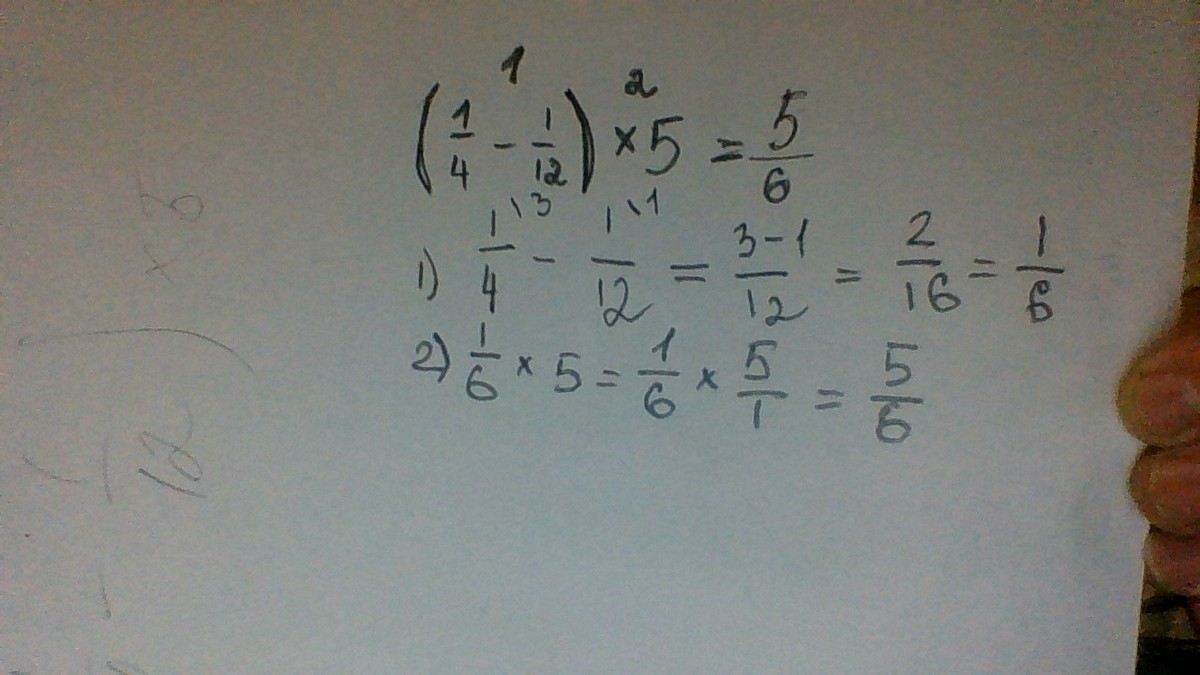 1 2
(1/4 - 1/12) × 5 = 5/6
1) 1/4 \3 - 1/12 \1 = 3-1/12 = 2/16 = 1/6
2) 1/6 × 5 = 1/6 × 5/1 = 5/6